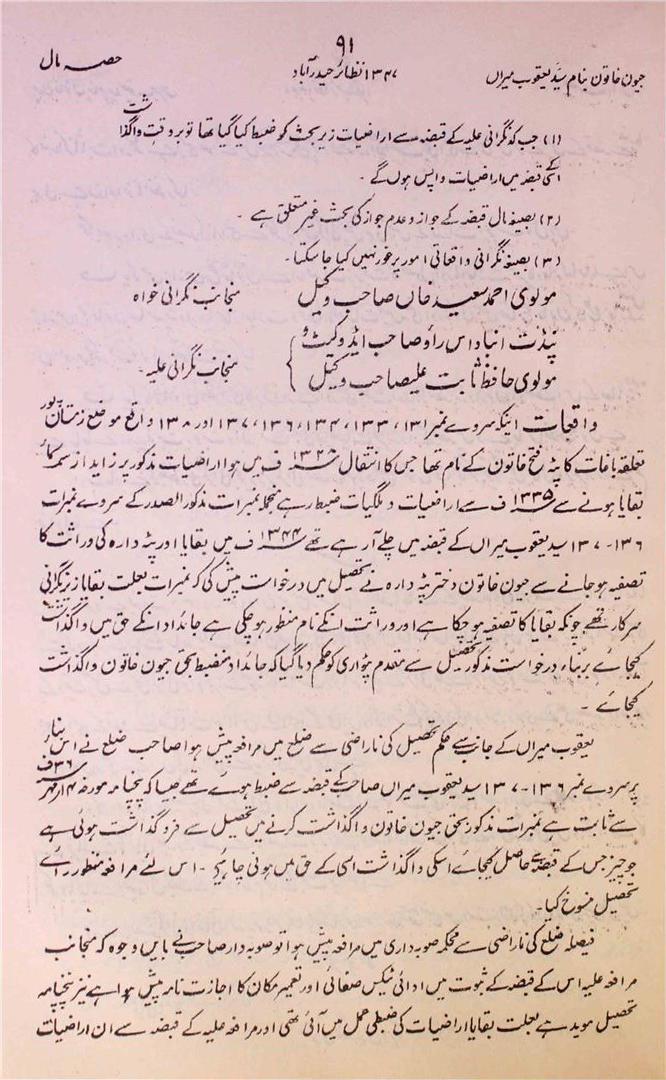 ۹۱
جیون خاتون بنام سید یعقوب میراں ۱۳۴۷ نظائر حیدرآباد حصہ مال
(۱) جب کہ نگرانی علیہ کے قبضہ سے اراضیات زیر بحث کو ضبط کیا گیا تھا تو بر وقت واگذاشت
اسی کے قبضہ میں اراضیات واپس ہوں گے۔
(۲) بصیغہ مال قبضہ کے جواز و عدم جواز کی بحث غیر متعلق ہے۔
(۳) بصیغہ نگرانی واقعاتی امور پر غور نہیں کیا جا سکتا۔
مولوی احمد سعید خاں صاحب وکیل منجانب نگرانی خواہ
پنڈت انباداس راؤ صاحب ایڈوکیٹ و
مولوی حافظ ثابت علی صاحب وکیل } منجانب نگرانی علیہ۔
واقعات اینکہ سروے نمبر ۱۳۱، ۱۳۳، ۱۳۴، ۱۳۶، ۱۳۷ اور ۱۳۸ واقع موضع زمستان پور
تعلقہ باغات کا پٹہ فتح خاتون کے نام تھا جس کا انتقال ۱۳۲۸ ف میں ہوا اراضیات مذکور پر زاید از سہ سالہ
بقایا ہونے سے ۱۳۳۵ ف سے اراضیات و ملگیات ضبط رہے منجملہ نمبرات مذکور الصدر کے سروے نمبرات
۱۳۶-۱۳۷ سید یعقوب میراں کے قبضہ میں چلے آ رہے تھے ۱۳۴۴ ف میں بقایا اور پٹہ دارہ کی وراثت کا
تصفیہ ہو جانے سے جیون خاتون دختر پٹہ دارہ نے تحصیل میں درخواست پیش کی کہ نمبرات بعلت بقایا زیر نگرانی
سرکار تھے چونکہ بقایا کا تصفیہ ہو چکا ہے اور وراثت انکے نام منظور ہو چکی ہے جائداد انکے حق میں واگذاشت
کیجائے بر بناء درخواست مذکور تحصیل سے مقدم پٹواری کو حکم دیا گیا کہ جائداد منضبط بحق جیون خاتون واگذاشت
کیجائے۔
یعقوب میراں کے جانب سے حکم تحصیل کی ناراضی سے ضلع میں مرافعہ پیش ہوا صاحب ضلع نے اس بناء
پر سروے نمبر ۱۳۶-۱۳۷ سید یعقوب میراں صاحب کے قبضہ سے ضبط ہوے تھے جیسا کہ پنچنامہ مورخہ ۴ ار مہر ۳۶ ف
سے ثابت ہے نمبرات مذکور بحق جیون خاتون واگذاشت کرنے میں تحصیل سے فروگذاشت ہوئی ہے
جو چیز جس کے قبضہ سے حاصل کیجائے اسکی واگذاشت اسی کے حق میں ہونی چاہیے۔ اس لئے مرافعہ منظور رائے
تحصیل منسوخ کیا۔
فیصلہ ضلع کی ناراضی سے محکمہ صوبہ داری میں مرافعہ پیش ہوا تو صوبہ دار صاحب نے بایں وجوہ کہ منجانب
مرافعہ علیہ اس کے قبضہ کے ثبوت میں ادائی ٹیکس صفائی اور تعمیر مکان کا اجازت نامہ پیش ہوا ہے نیز پنچنامہ
تحصیل موید ہے بعلت بقایا اراضیات کی ضبطی عمل میں آئی تھی اور مرافعہ علیہ کے قبضہ سے ان اراضیات